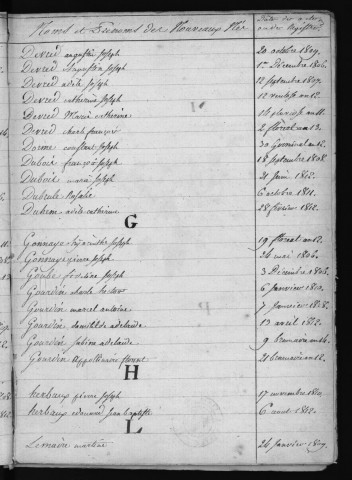 Noms et Prénoms des Nouveaux Nés
Date des actes
Devred augustin Joseph 20 octobre 1809.
Devred augustin Joseph 1er Décembre 1806.
Devred adèle Joseph 12 Septembre 1807.
Devred catherine Joseph 12 ventose an 12.
Devred Marie catherine an 11.
Devred charle françois 2 floreal an 13.
constant Joseph 30 Germinal an 12.
Dubois françois Joseph 18 Septembre 1808.
Dubois marie Joseph 21 Juin 1812.
Rosalie 6 octobre 1811.
adèle catherine 28 février 1812.
G
Gonnaye hyacinthe Joseph 19 floreal an 12.
Gonnaye pierre Joseph 26 mai 1806.
Joseph 3 Décembre 1806.
Gourdin 6 Janvier
Gourdin marcel antoine 7 Janvier
Gourdin clotilde adelaide 13 avril 1812.
Gourdin sabine adelaide 9 an 14.
Gourdin Appollinaire florent 21 an 12.
H
herbaux pierre Joseph 17 novembre
herbaux edouard Jean baptiste 6 aout 1812.
L
Lemaire martine 26 Janvier 1809.